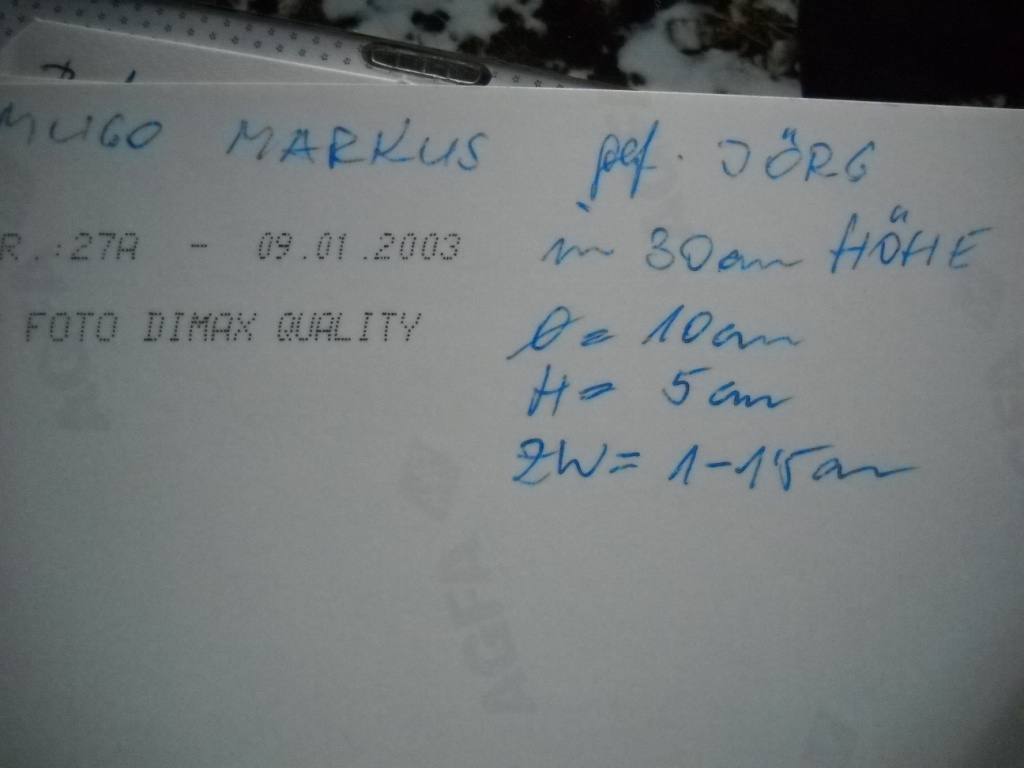 MUGO MARKUS gef. JÖRG
in 30cm HÖHE
R.:27A - 09.01.2003
Ø= 10cm
FOTO DIMAX QUALITY
H= 5cm
ZW= 1-1'5cm
AGFA